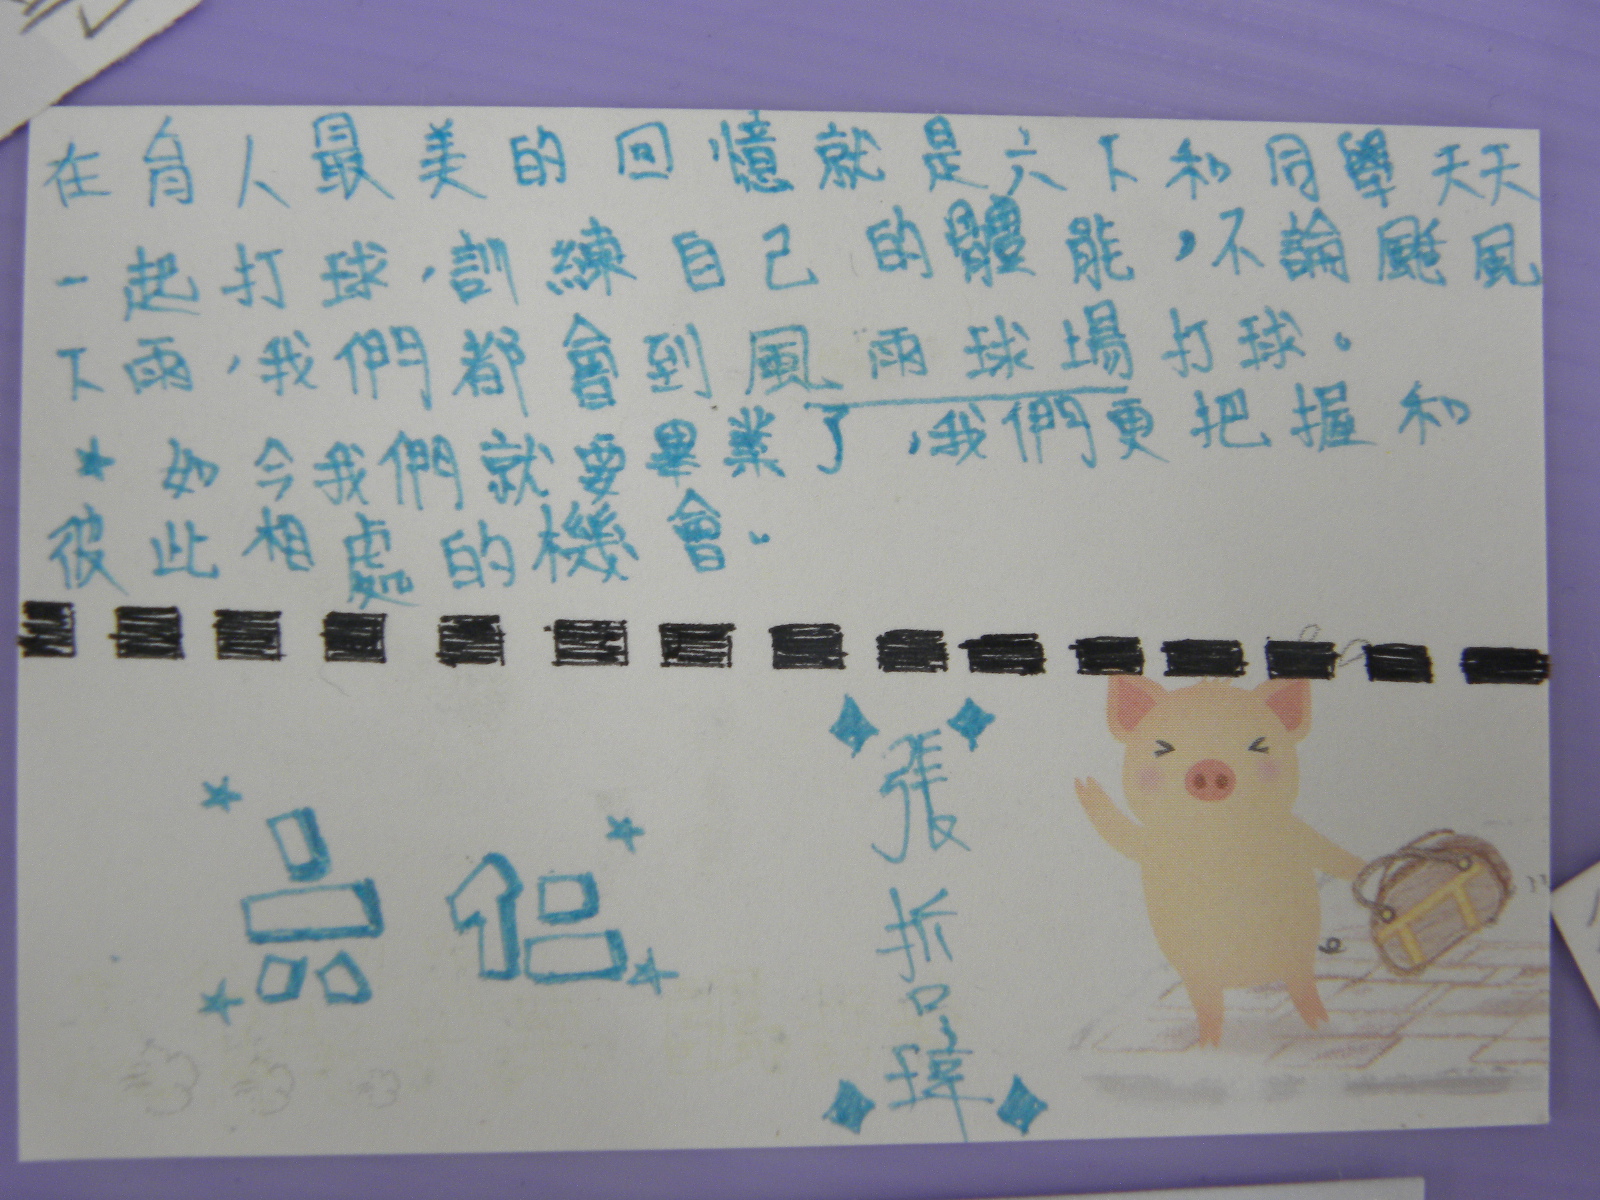 在育人最美的回憶就是六下和同學天天
一起打球，訓練自己的體能，不論颳風
下雨，我們都會到風雨球場打球。
★如今我們就要畢業了，我們更把握和
彼此相處的機會。
張哲瑋